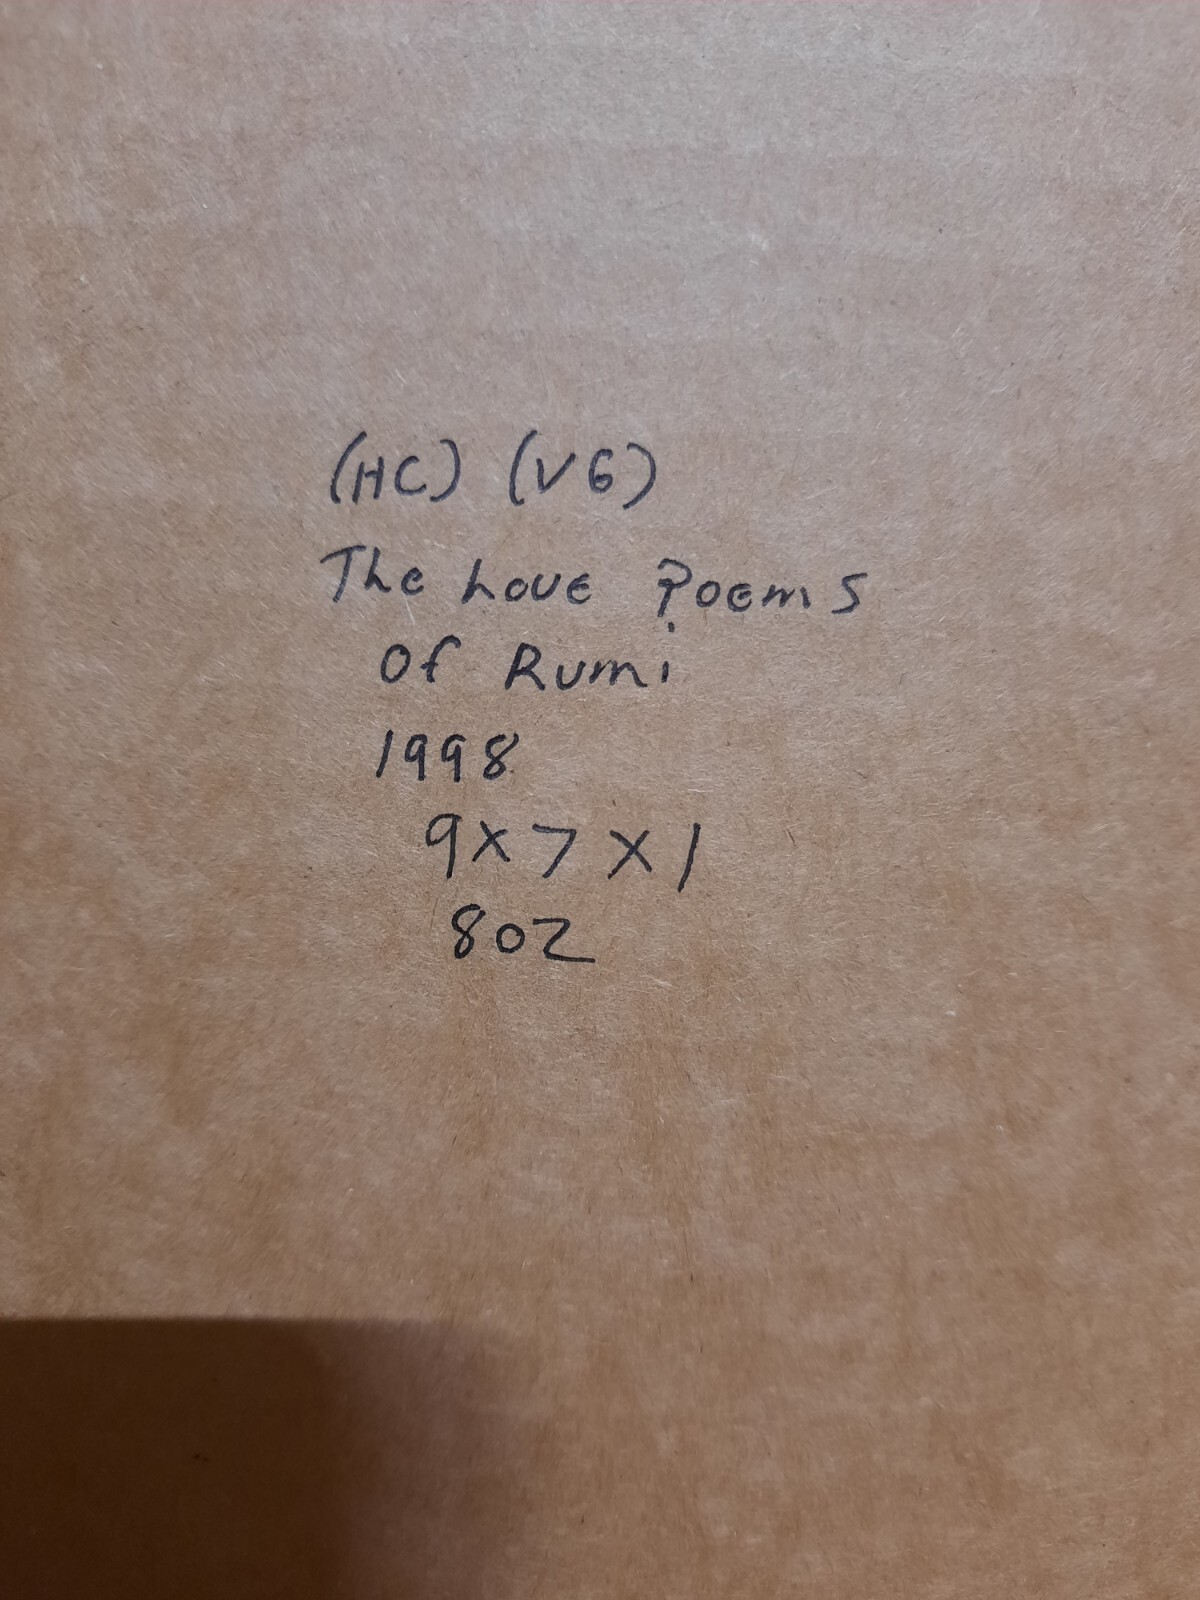 (HC) (VG)
The Love Poems
Of Rumi
1998
9x7x1
8oz